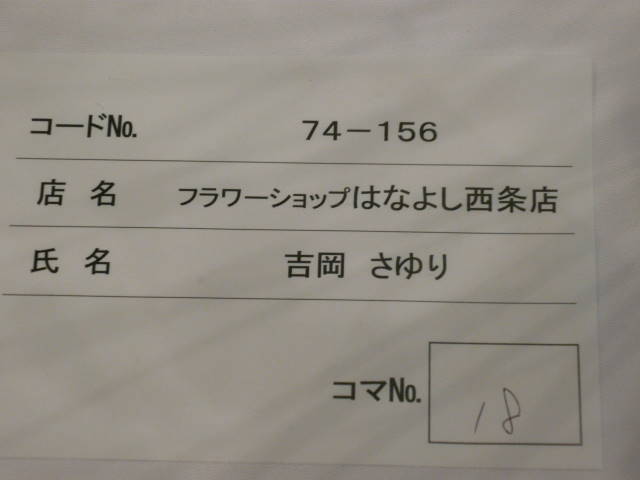 コードNo. 74－156
店 名 フラワーショップはなよし西条店
氏 名 吉岡 さゆり
コマNo. 18